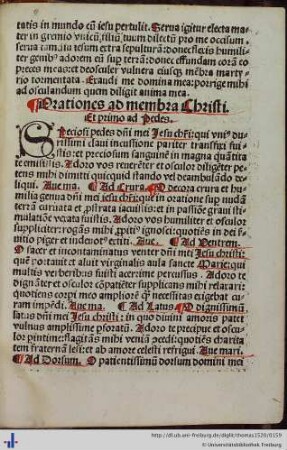 tatis in mundo cū iesu pertulit. Serua igitur electa ma
ter in gremio vnicū filiū tuum dilectū pro me occisum.
serua
liter genibꝰ adorem cū sup terrā: donec effundam corā co
preces meas: et deosculer vulnera eiusqꝫ mēbra marty
rio tormentata. Exaudi me domina mea: porrige mihi
ad osculandum quem diligit anima mea.
¶Orationes ad membra Christi.
Et primo ad Pedes.
SPeciosi pedes dn̄i mei Jesu chr̄i: qui vniꝰ du
rissimi claui incussione pariter transfixi fui
stis: et preciosum sanguinē in magna quātita
te emisistis. Adoro vos reuerēter et osculor diligēter pe
tens mihi dimitti quicquid stando vel deambulādo de
liqui. Aue ma. ¶Ad Crura. ¶O decora crura et hu
milia genua dn̄i mei iesu chr̄i: que in oratione sup nudā
terrā curuata et ,pstrata iacuistis: et in passiōe graui sti
mulatiōe vexata fuistis. Adoro vos humiliter et osculor
suppliciter: rogās mihi ,ppitiꝰ ignosci: quotiēs in dei
fitio piger et indeuotꝰ extiti. Aue. ¶Ad Ventrem.
O sacer et incontaminatus venter dn̄i mei Jesu christi:
que portauit aluit virginalis aula sancte Marie: qui
multis verberibus fuisti acerrime percussus. Adoro te
dignāter et osculor cōpatiēter supplicans mihi relaxari:
quotiens corpi meo ampliorē ꝙ̄ necessitas exigebat cu
ram impēdi. Aue ma. ¶Ad Latus ¶O dignissimū
latus dn̄i mei Jesu christi: in quo diuini amoris patet
vulnus amplissime ,pforatū. Adoro te precipue et oscu
lor
tem fraternā lesi: et ab amore celesti refrigui. Aue mari.
¶Ad Dorsum. O patientissimū dorsum domini mei
http://dl.ub.uni-freiburg.de/diglit/thomas1520/0159
© Universitätsbibliothek Freiburg